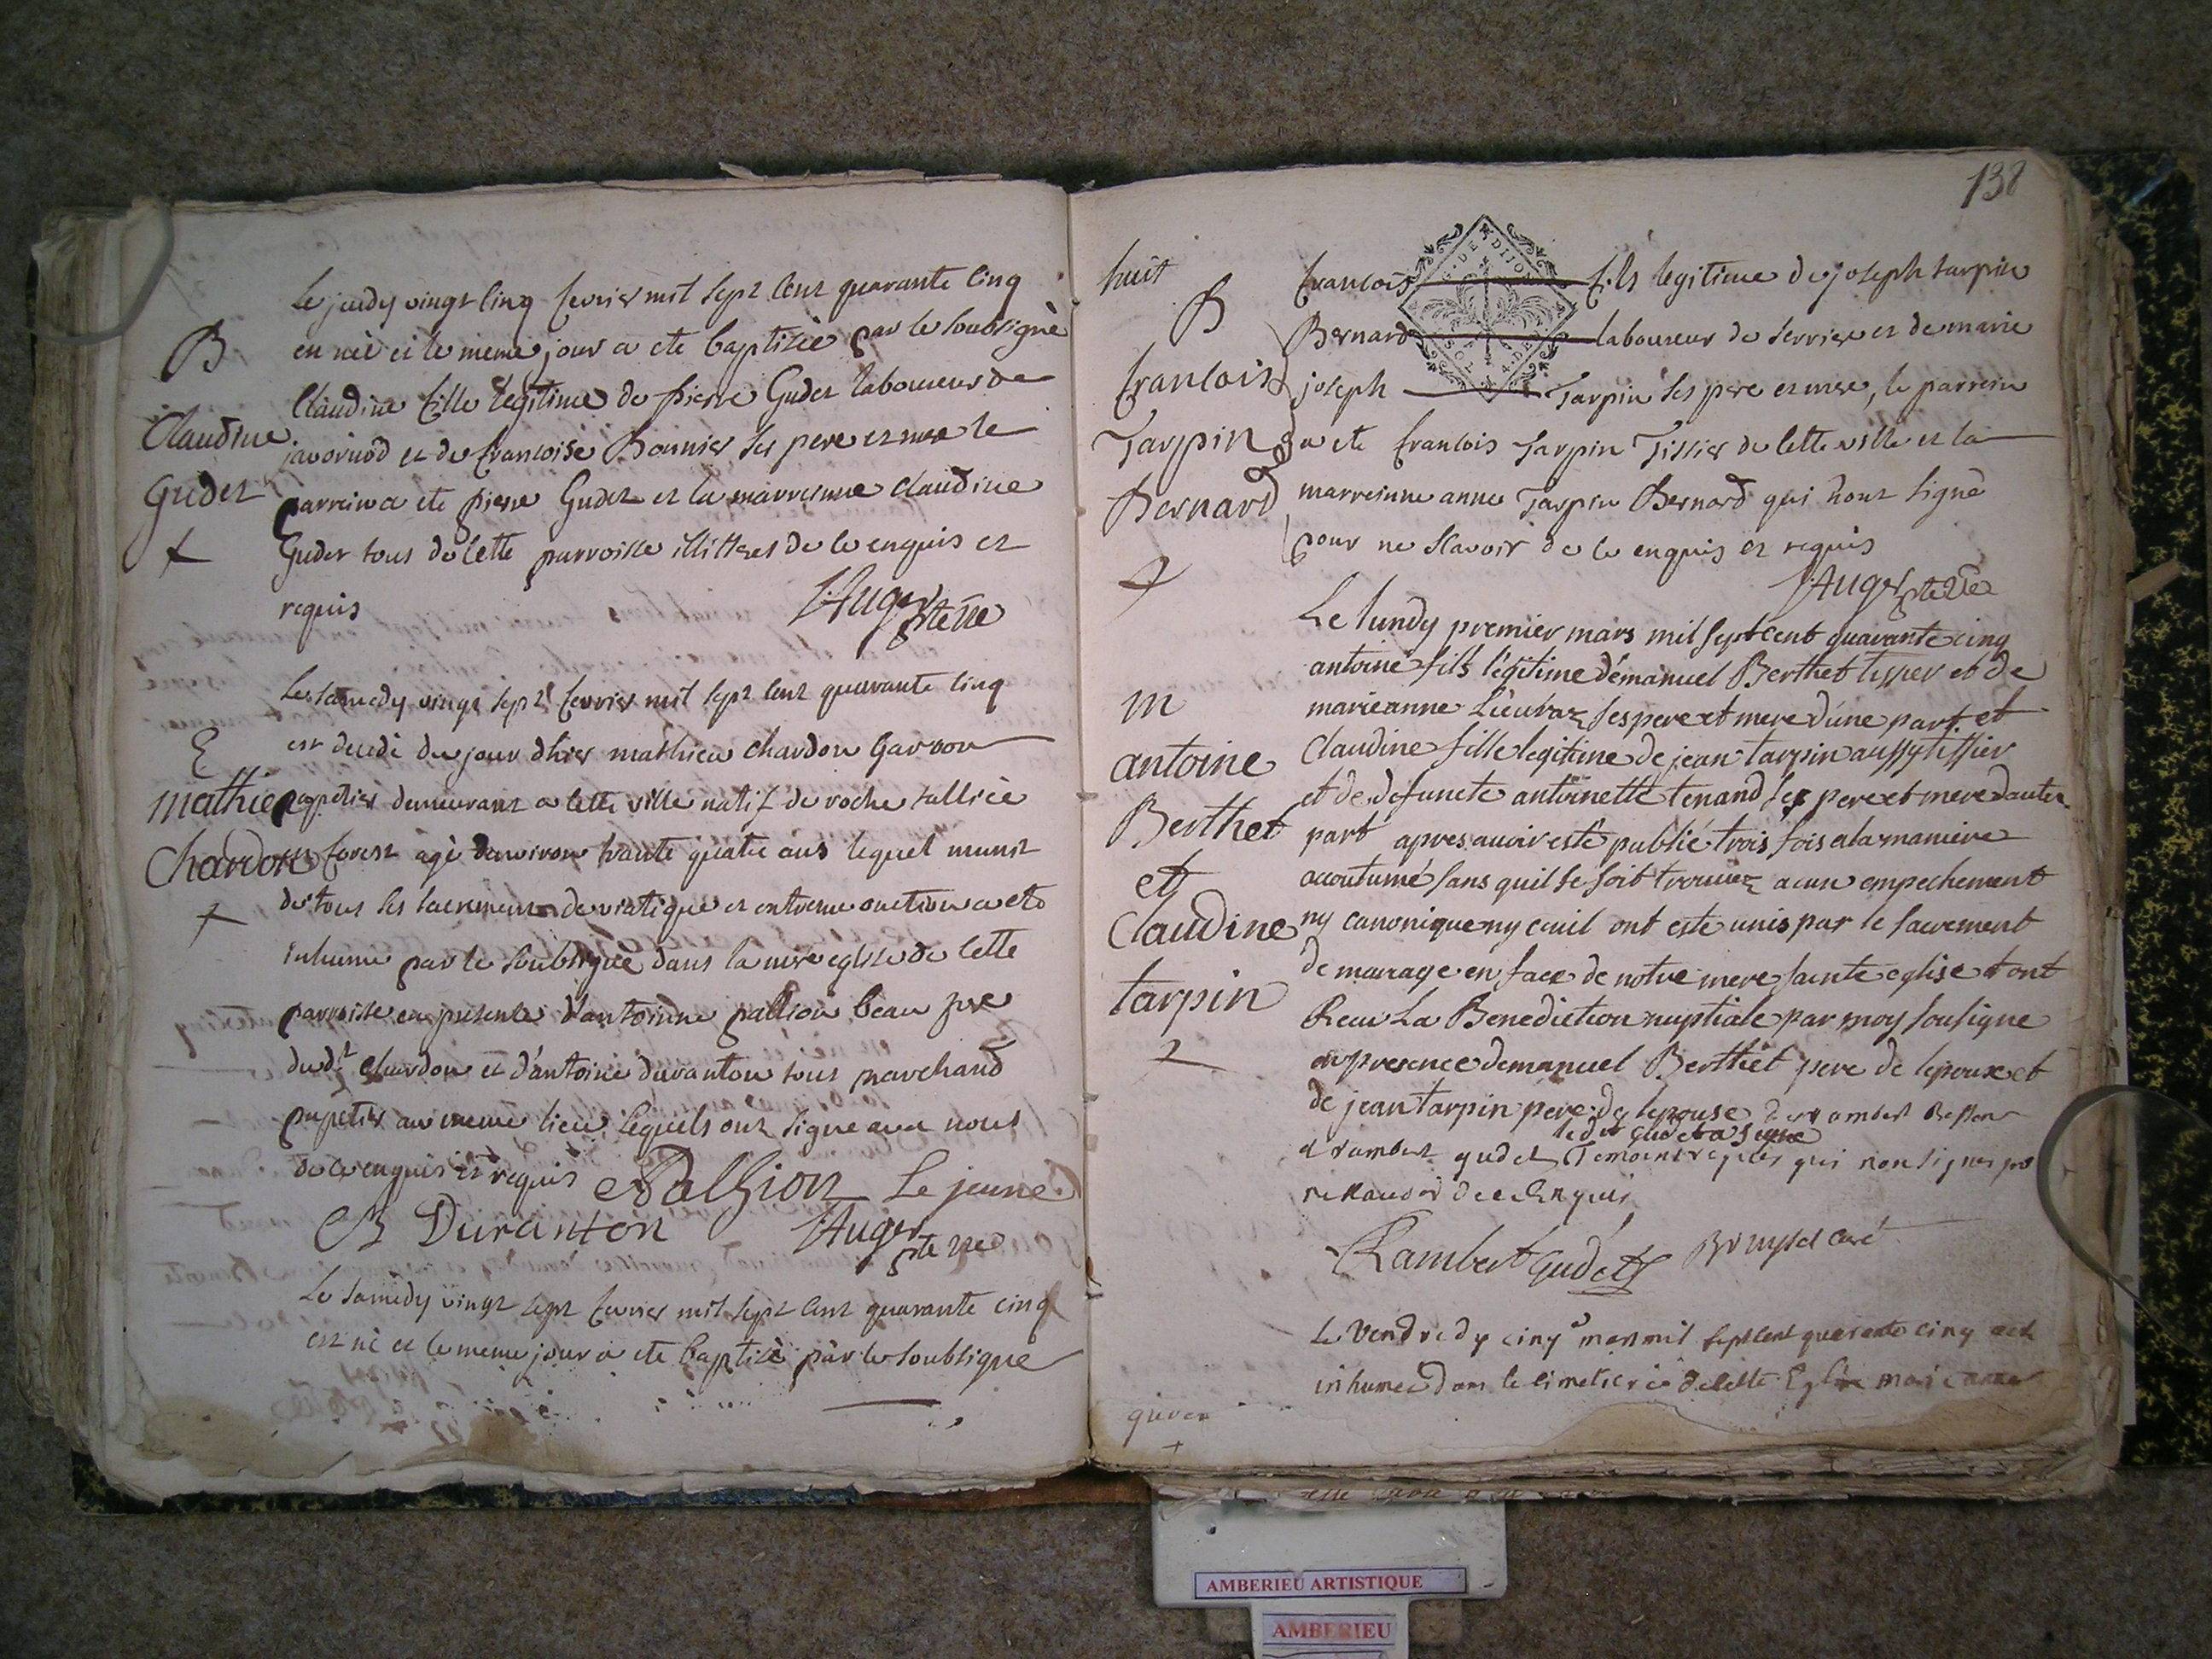 B
Claudine
Gudet
Le jeudy vingt cinq fevrier mil sept cent quarante cinq
en née et le meme jour a ete baptisée par le soubsigné
Claudine fille legitime de pierre Gudet laboureur de
javornod et de francoise Bonnier ses pere et mere le
parrein a ete pierre Gudet et la marreinne claudine
Gudet tous de cette parroisse illittres de ce enquis et
requis
Auger ptre vre
E
Mathieu
Chardon
Le samedy vingt sept fevrier mil sept cent quarante cinq
est decedé du jour dhier mathieu chardon garson
papetier demeurant a cette ville natif de roche
forest agé denviron trante quatre ans lequel munit
de tous ses sacrements de viatique et extreme onction a ete
inhumé par le soubsigné dans la eglise de cette
parroisse en presence d'antoinne pallion beau
dudt chardon et d'antoine duranton tous marchand
papetier au meme lieu lequels ont signe avec nous
de ce enquis et requis Le jeune
B Duranton Auger ptre vre
Le samedy vingt sept fevrier mil sept cent quarante cinq
est né et le meme jour a ete baptisé par le soubsigne
138
huit
B
francois
Tarpin
Bernard
G. DE DIJON
francois fils legitime de joseph tarpin
Bernard laboureur de serrier et de marie
joseph Tarpin ses pere et mere, le parrein
a ete francois Tarpin Tissier de cette ville et la
marreinne anne Tarpin Bernard qui n'ont signé
pour ne scavoir de ce enquis et requis
Auger ptre vre
m
antoine
Berthet
et
Claudine
tarpin
Le lundy premier mars mil sept cent quarante cinq
antoine fils légitime d'emanuel Berthet et de
marieanne ses pere et mere d'une part et
Claudine fille legitime de jean tarpin aussy tissier
et de defuncte antoinette tenand ses pere et mere dautre
part apres avoir esté publié trois fois a la maniere
acoutumé sans quil se soit trouvez acun empechement
ny canonique ny civil ont este unis par le sacrement
de mariage en face de notre mere sainte eglise et ont
Receu La Benediction nuptiale par moy sousigne
en presence demanuel Berthet pere de lepoux et
de jean tarpin pere de lepouse de rambert
ledit gudet a signe
et rambert gudet Temoins requis qui non signes
de ce enquis
Rambert Gudet curé
Le Vendredy cinq mars mil sept cent quarante cinq
inhumée dans le cimetiere de cette Eglise marie anne
AMBERIEU ARTISTIQUE
AMBERIEU